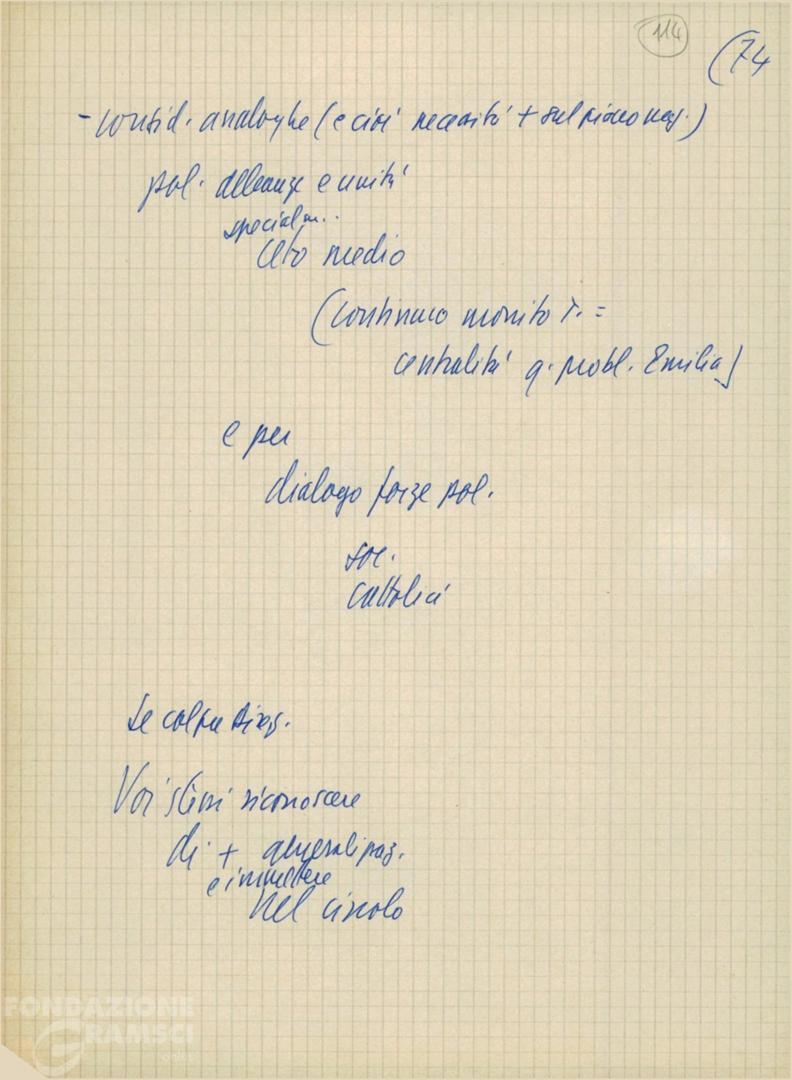 114
(74
- consid. analoghe (e cioè necessità + sul piano reg.)
pol. alleanze e unità
specialm..
Ceto medio
(continuo monito T. =
centralità q. probl. Emilia)
e per
dialogo forze pol.
soc.
cattolici
Se colpa
Voi stessi riconoscere
di +
e immettere
nel circolo
FONDAZIONE
GRAMSCI